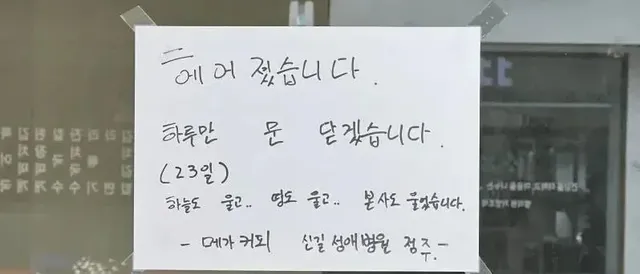 헤어졌습니다.
하루만 문 닫겠습니다.
(23일)
하늘도 울고.. 땅도 울고.. 본사도 울었습니다.
- 메가 커피 신길 성애병원 점주. -